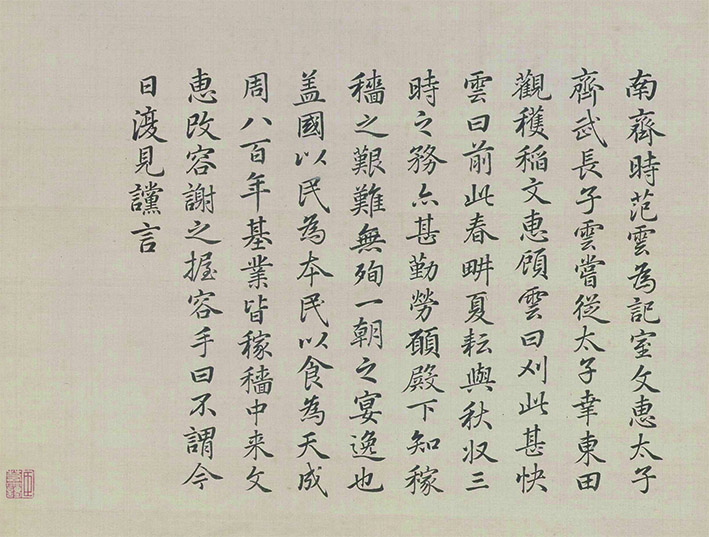 南齋時范雲為記室文惠太子
齊武長子雲嘗從太子幸東田
觀穫稻文惠顧雲曰刈此甚快
雲曰前此春畊夏耘與秋収三
時之務亦甚勤勞願殿下知稼
穡之艱難無殉一朝之宴逸也
盖國以民為本民以食為天成
周八百年基業皆稼穡中来文
惠改容謝之握容手曰不謂今
日復見讜言